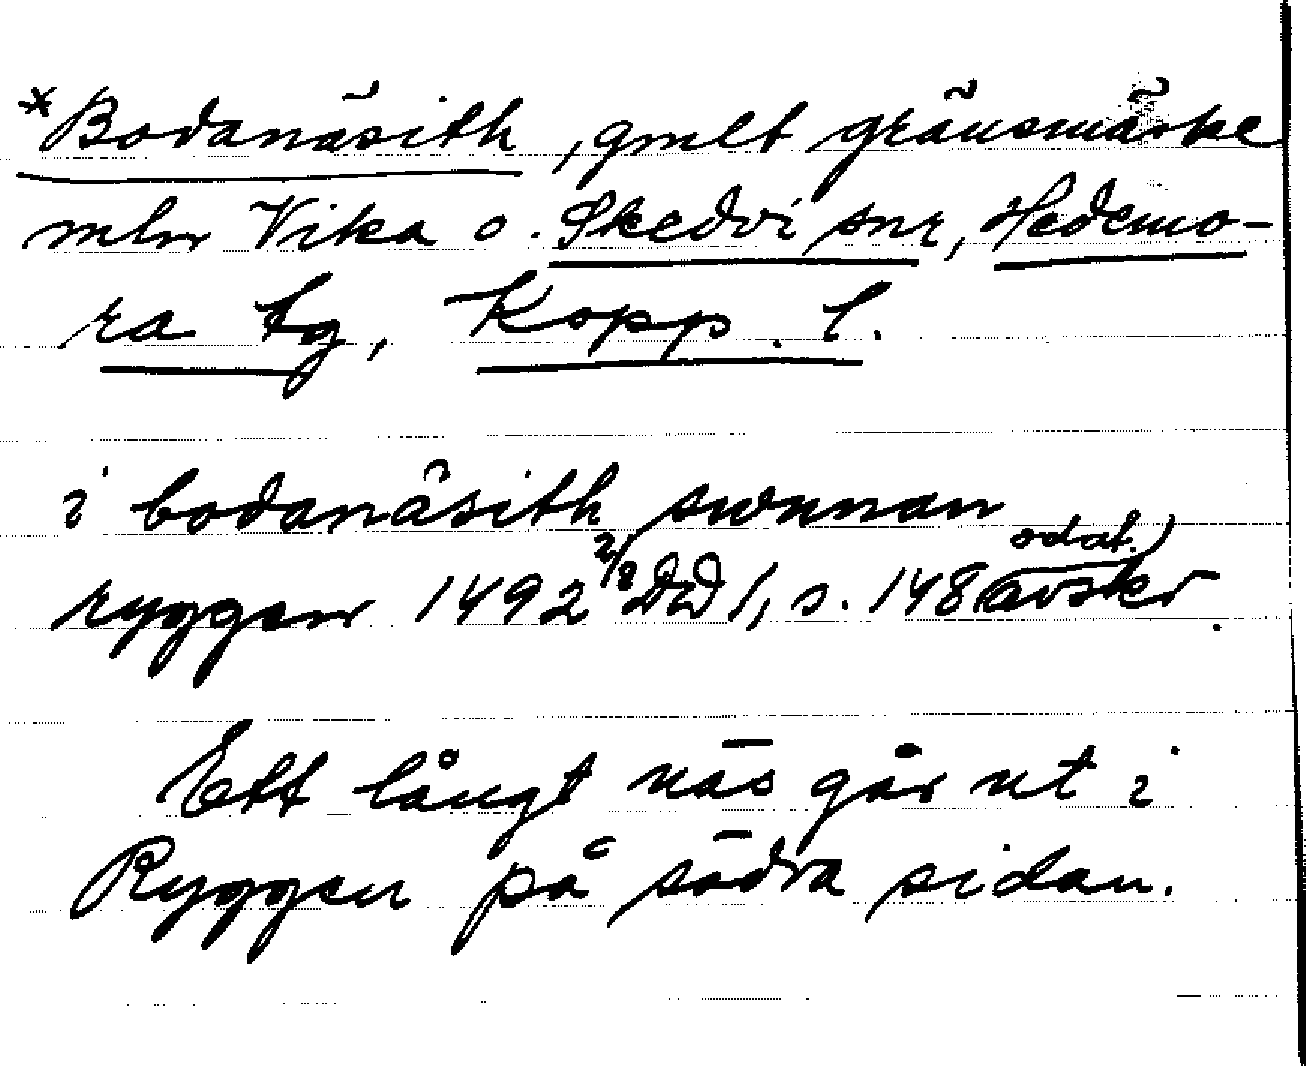 *Bodanäsith, gmlt gränsmärke
mlm Vika o. Skedvi snr, Hedemo-
ra tg, Kopp. l.
i bodanäsith swnnan
ryggen 1492 2/8 DD 1, s. 148 (odat. avskr.)
Ett långt näs går ut i
Ryggen på södra sidan.